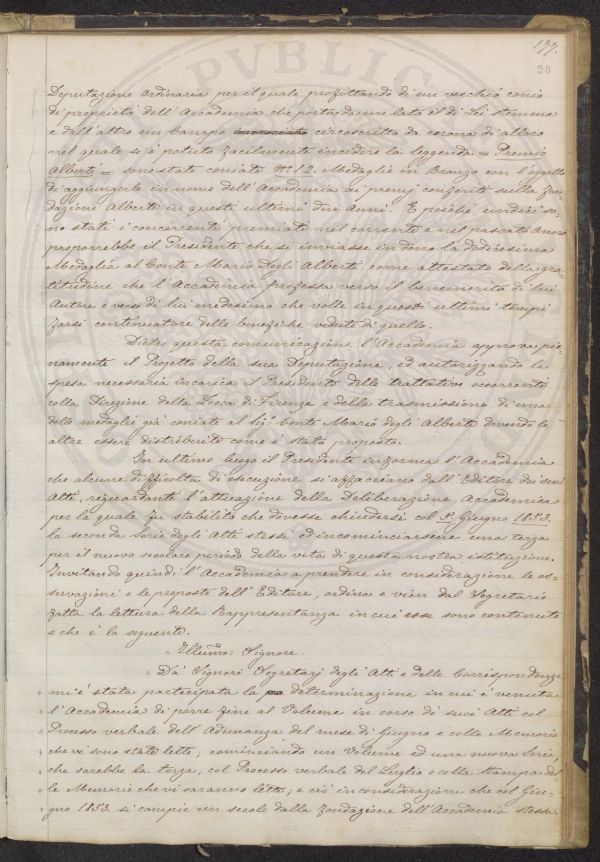 177.
90
Deputazione ordinaria per il quale profittando di un vecchio conio
di proprietà dell'Accademia che porta da un lato il di Lei stemma
e dall'altro un Campo circoscritto da corona di alloro
nel quale si è potuto facilmente incidere la leggenda = Premio
Alberti = sono state coniate N.º 12. Medaglie in Bronzo con l'oggetto
di aggiungerle in nome dell'Accademia ai premj conferiti sulla fon-
dazione Alberti in questi ultimi due anni. E poiché undici so-
no stati i concorrenti premiati nel corrente e nel passato Anno
proporrebbe il Presidente che si inviasse in dono la dodicesima
Medaglia al Conte Mario degli Alberti come attestato della gra-
titudine che l'Accademia professa verso il benemerito di lui
Autore e verso di lui medesimo che volle in questi ultimi tempi
farsi continuatore delle benefiche vedute di quello.
Dietro questa comunicazione l'Accademia approva pie-
namente il Progetto della sua Deputazione, ed autorizzando la
spesa necessaria incarica il Presidente delle trattative occorrenti
colla Direzione della Zecca di Firenze e della trasmissione di una
delle medaglie già coniate al Sig.r Conte Mario degli Alberti dovendo le
altre essere distribuite come è stato proposto.
In ultimo luogo il Presidente informa l'Accademia
che alcune difficoltà di esecuzione si affacciano dall'Editore dei suoi
Atti, riguardanti l'attuazione della Deliberazione Accademica
per la quale fu stabilito che dovesse chiudersi col Giugno 1853.
la seconda Serie degli Atti stessi ed incominciarsene una terza
per il nuovo secolare periodo della vita di questa nostra istituzione.
Invitando quindi l'Accademia a prendere in considerazione le os-
servazioni e le proposte dell'Editore, ordina e vien dal Segretario
fatta la lettura della Rappresentanza in cui esse sono contenute
e che è la seguente.
" Illustrmo: Signore.
" Da' Signori Segretarj degli Atti e delle Corrispondenze
" mi è stata partecipata la determinazione in cui è venuta
" l'Accademia di porre fine al Volume in corso de' suoi Atti col
" Processo verbale dell'Adunanza del mese di Giugno e colle Memorie
" che vi sono state lette; cominciando un Volume ed una nuova Serie,
" che sarebbe la terza, col Processo verbale del Luglio e colla stampa del-
" le Memorie che vi saranno lette; e ciò in considerazione che col Giu-
" gno 1853. si compie un secolo dalla fondazione dell'Accademia stessa.